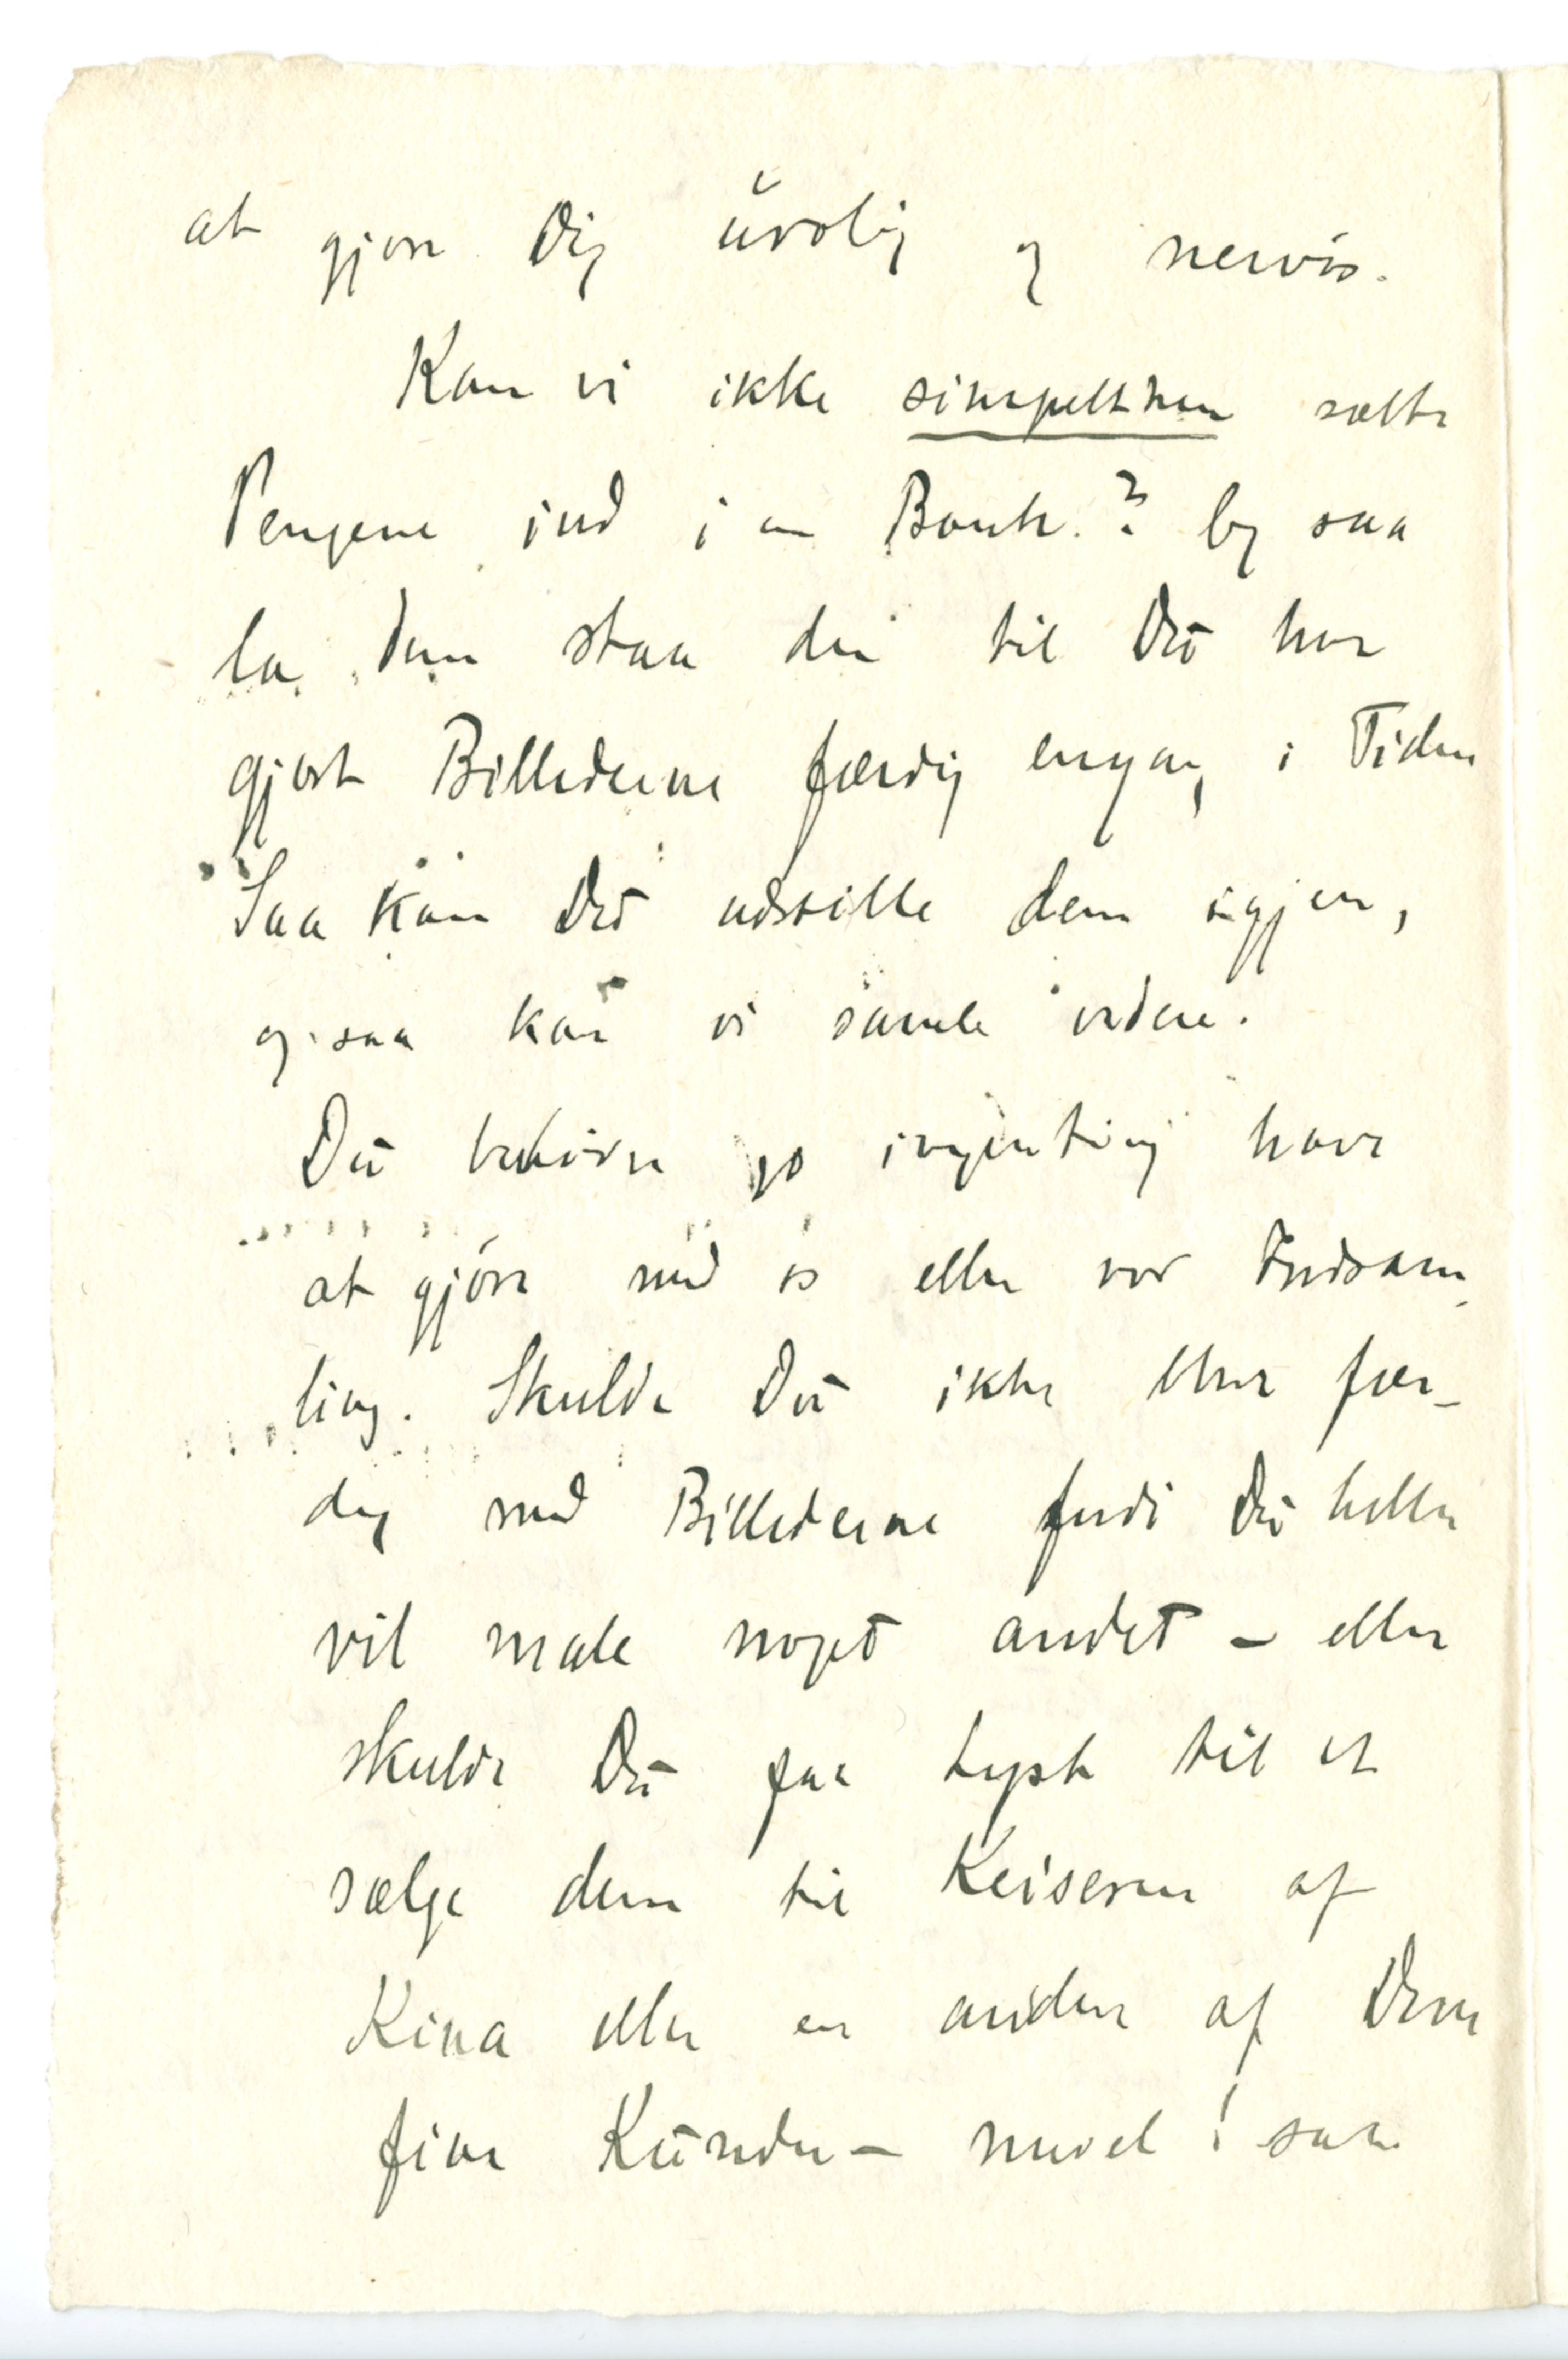 at gjøre Dig urolig og nervøs.
Kan vi ikke simpelthen sætte
Pengene ind i en Bank? Og saa
la dem staa der til Du har
gjort Billederne færdig engang i Tiden
Saa kan Du udstille dem igjen,
og saa kan vi samle videre.
Du behøver jo ingenting have
at gjøre med os eller vor Indsam-
ling. Skulde Du ikke blive fær-
dig med Billederne fordi Du heller
vil male noget andet – eller
skulde Du faa Lyst til at
sælge dem til Keiseren af
Kina eller en anden af Dine
fine Kunder – nuvel! saa